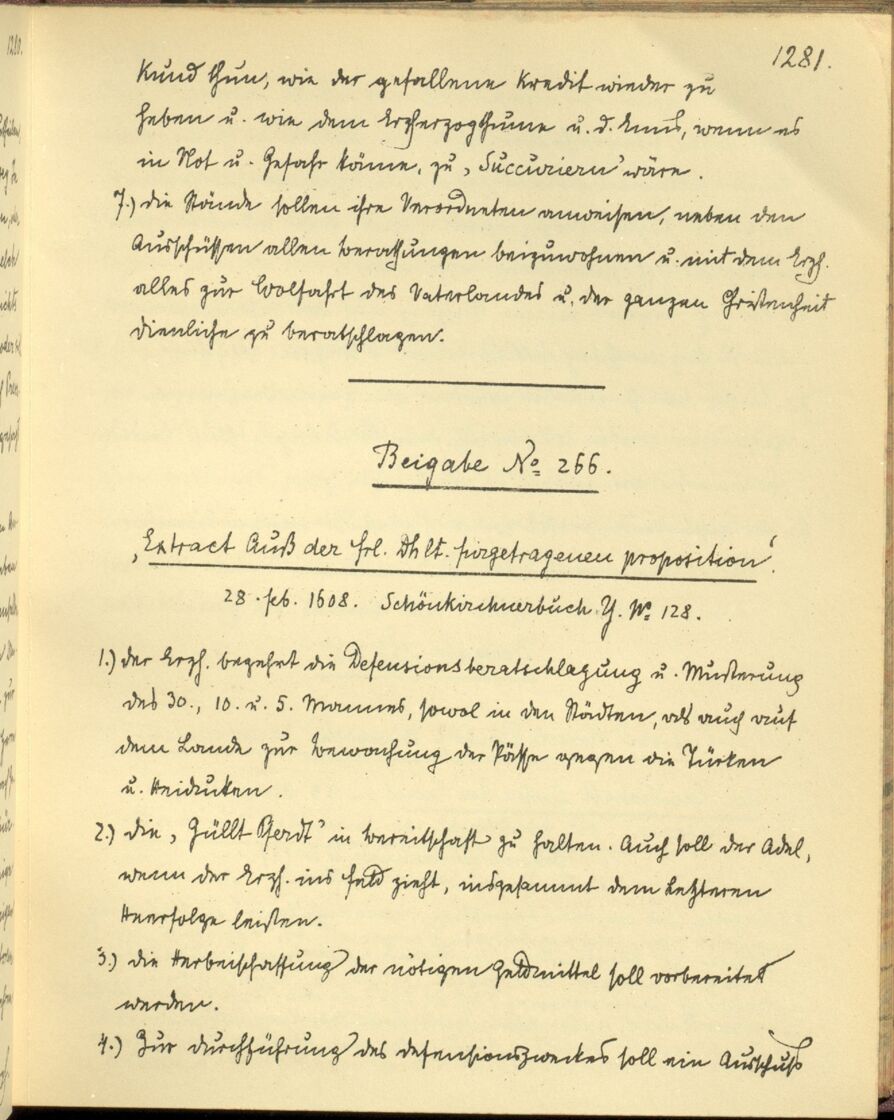 1281.
Kund thun, wie der gefallene Kredit wieder zu
heben u. wie dem Erzherzogthume u. d. Enns, wenn es
in Not u. Gefahr käme, zu „Succurieren" wäre.
7.) Die Stände sollen ihre Verordneten anweisen, neben den
Ausschüssen allen Berathungen beizuwohnen u. mit dem Erzh.
alles zur Wolfahrt des Vaterlandes u. der ganzen Christenheit
dienliche zu beratschlagen.
Beigabe No 266.
„Extract Auß der frl. Dhlt. fürgetragenen proposition".
28. feb. 1608. Schönkirchnerbuch Y. No 128.
1.) der Erzh. begehrt die Defensionsberatschlagung u. Musterung
des 30., 10. u. 5. Mannes, sowol in den Städten, als auch auf
dem Lande zur Bewachung der Pässe gegen die Türken
u. Heiducken.
2.) die „Güllt Pferdt" in Bereitschaft zu halten. Auch soll der Adel,
wenn der Erzh. ins Feld zieht, insgesammt dem Letzteren
Heerfolge leisten.
3.) die Herbeischaffung der nötigen Geldmittel soll vorbereitet
werden.
4.) Zur Durchführung des Defensionszweckes soll ein Ausschuß